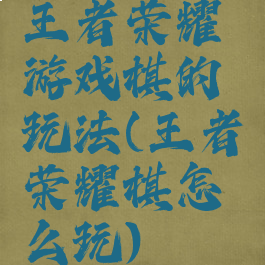 王者荣耀
游戏棋的
玩法(王者
荣耀棋怎
么玩)